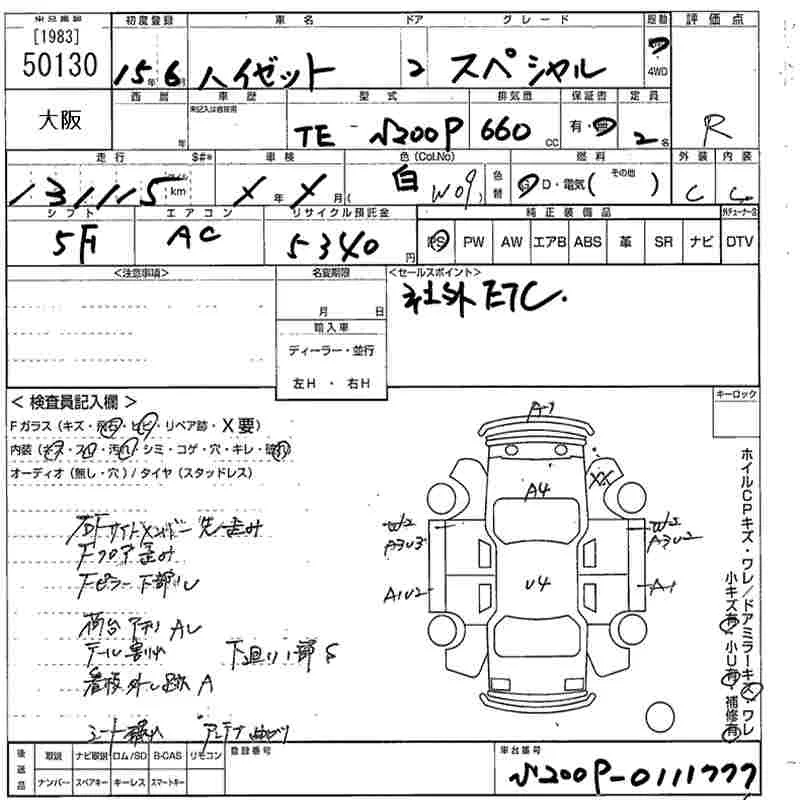 [1983]
50130
初度登録 車名 ドア グレード 駆動 評価点
15年6月 ハイゼット 2 スペシャル 4WD R
大阪
西暦 車歴 型式 排気量 保証書 定員
年 未記入は自家用 TE-S200P 660cc 有・無 2名
走行 $#* 車検 色(Col.No) 燃料 外装 内装
131115km X年X月( 白 W09) 色替 G・D・電気( その他 ) C C
シフト エアコン リサイクル預託金 純正装備品
5F AC 5340円 PS PW AW エアB ABS 革 SR ナビ DTV
<注意事項> 名変期限 <セールスポイント>
月 日 社外ETC.
輸入車
ディーラー・並行
左H ・ 右H
< 検査員記入欄 > キーロック
Fガラス(キズ・飛石・ヒビ・リペア跡・X要)
内装(キズ・スレ・汚れ・シミ・コゲ・穴・キレ・
オーディオ(無し・穴)/タイヤ(スタッドレス)
A-1
A4
XX
W2
A3U3
W2
A3U2
U4
A1U2
A-1
Fフロア歪み
Fピラー下部U
荷台アオリAU
テール割れ 下廻り1部S
看板外し跡A
アンテナ曲がり
ホイルCPキズ・ワレ/ドアミラーキズ・ワレ
小キズ有・小U有・補修有
後送品 取説 ナビ取説 ロム/SD B-CAS リモコン 登録番号 車台番号
ナンバー スペアキー キーレス スマートキー S200P-0111777